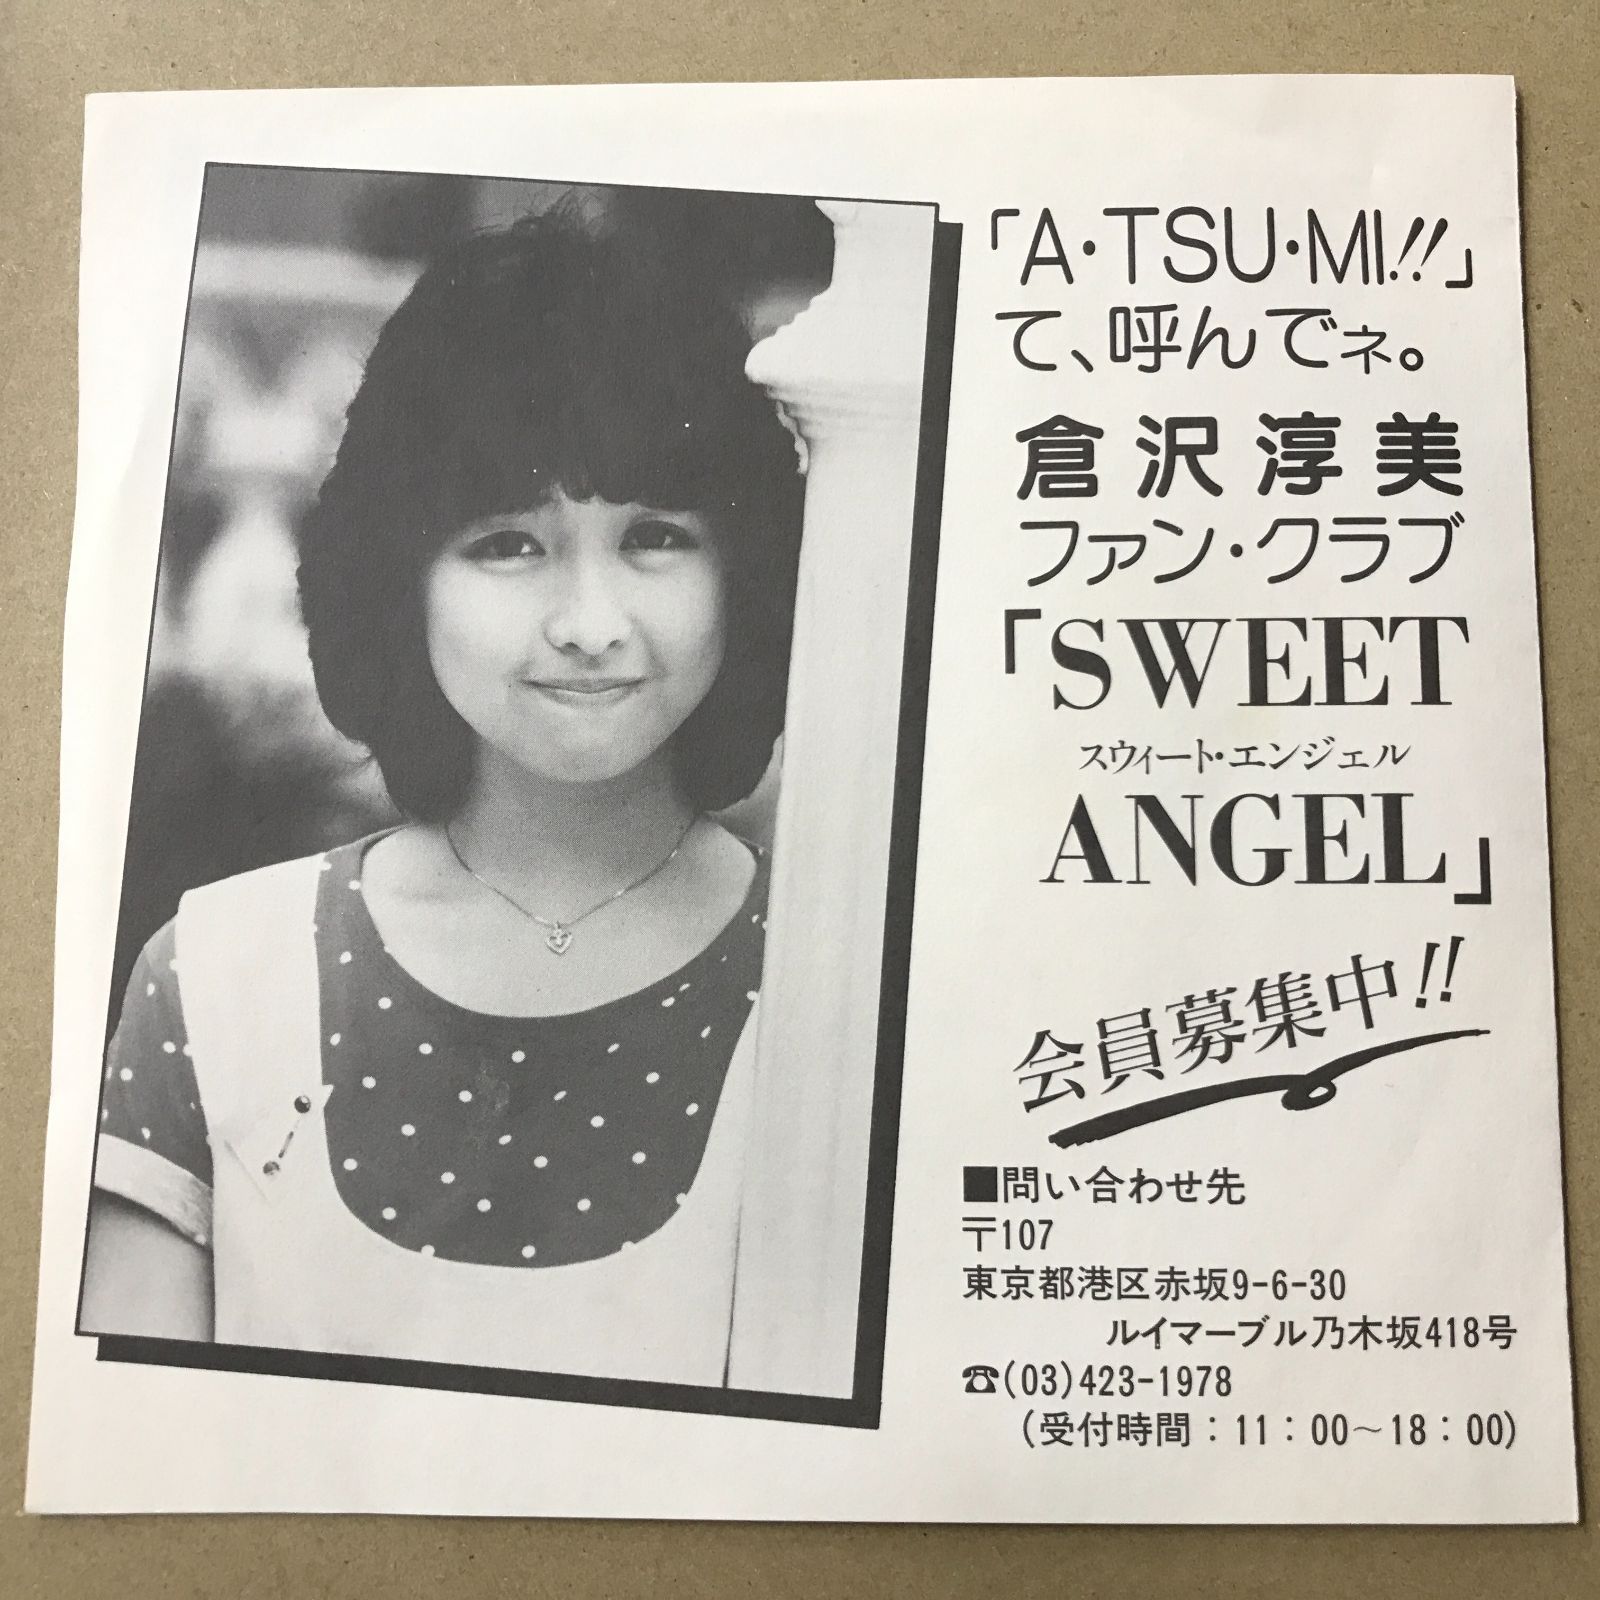 「A・TSU・MI!!」
て、呼んでネ。
倉沢淳美
ファン・クラブ
「SWEET
スウィート・エンジェル
ANGEL」
会員募集中!!
■問い合わせ先
〒107
東京都港区赤坂9-6-30
ルイマーブル乃木坂418号
☎(03)423-1978
(受付時間：11：00～18：00)